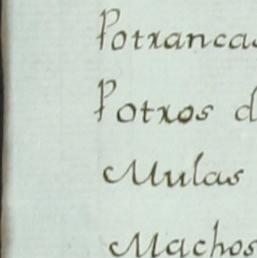 Potrancas
Potros d
Mulas
Machos